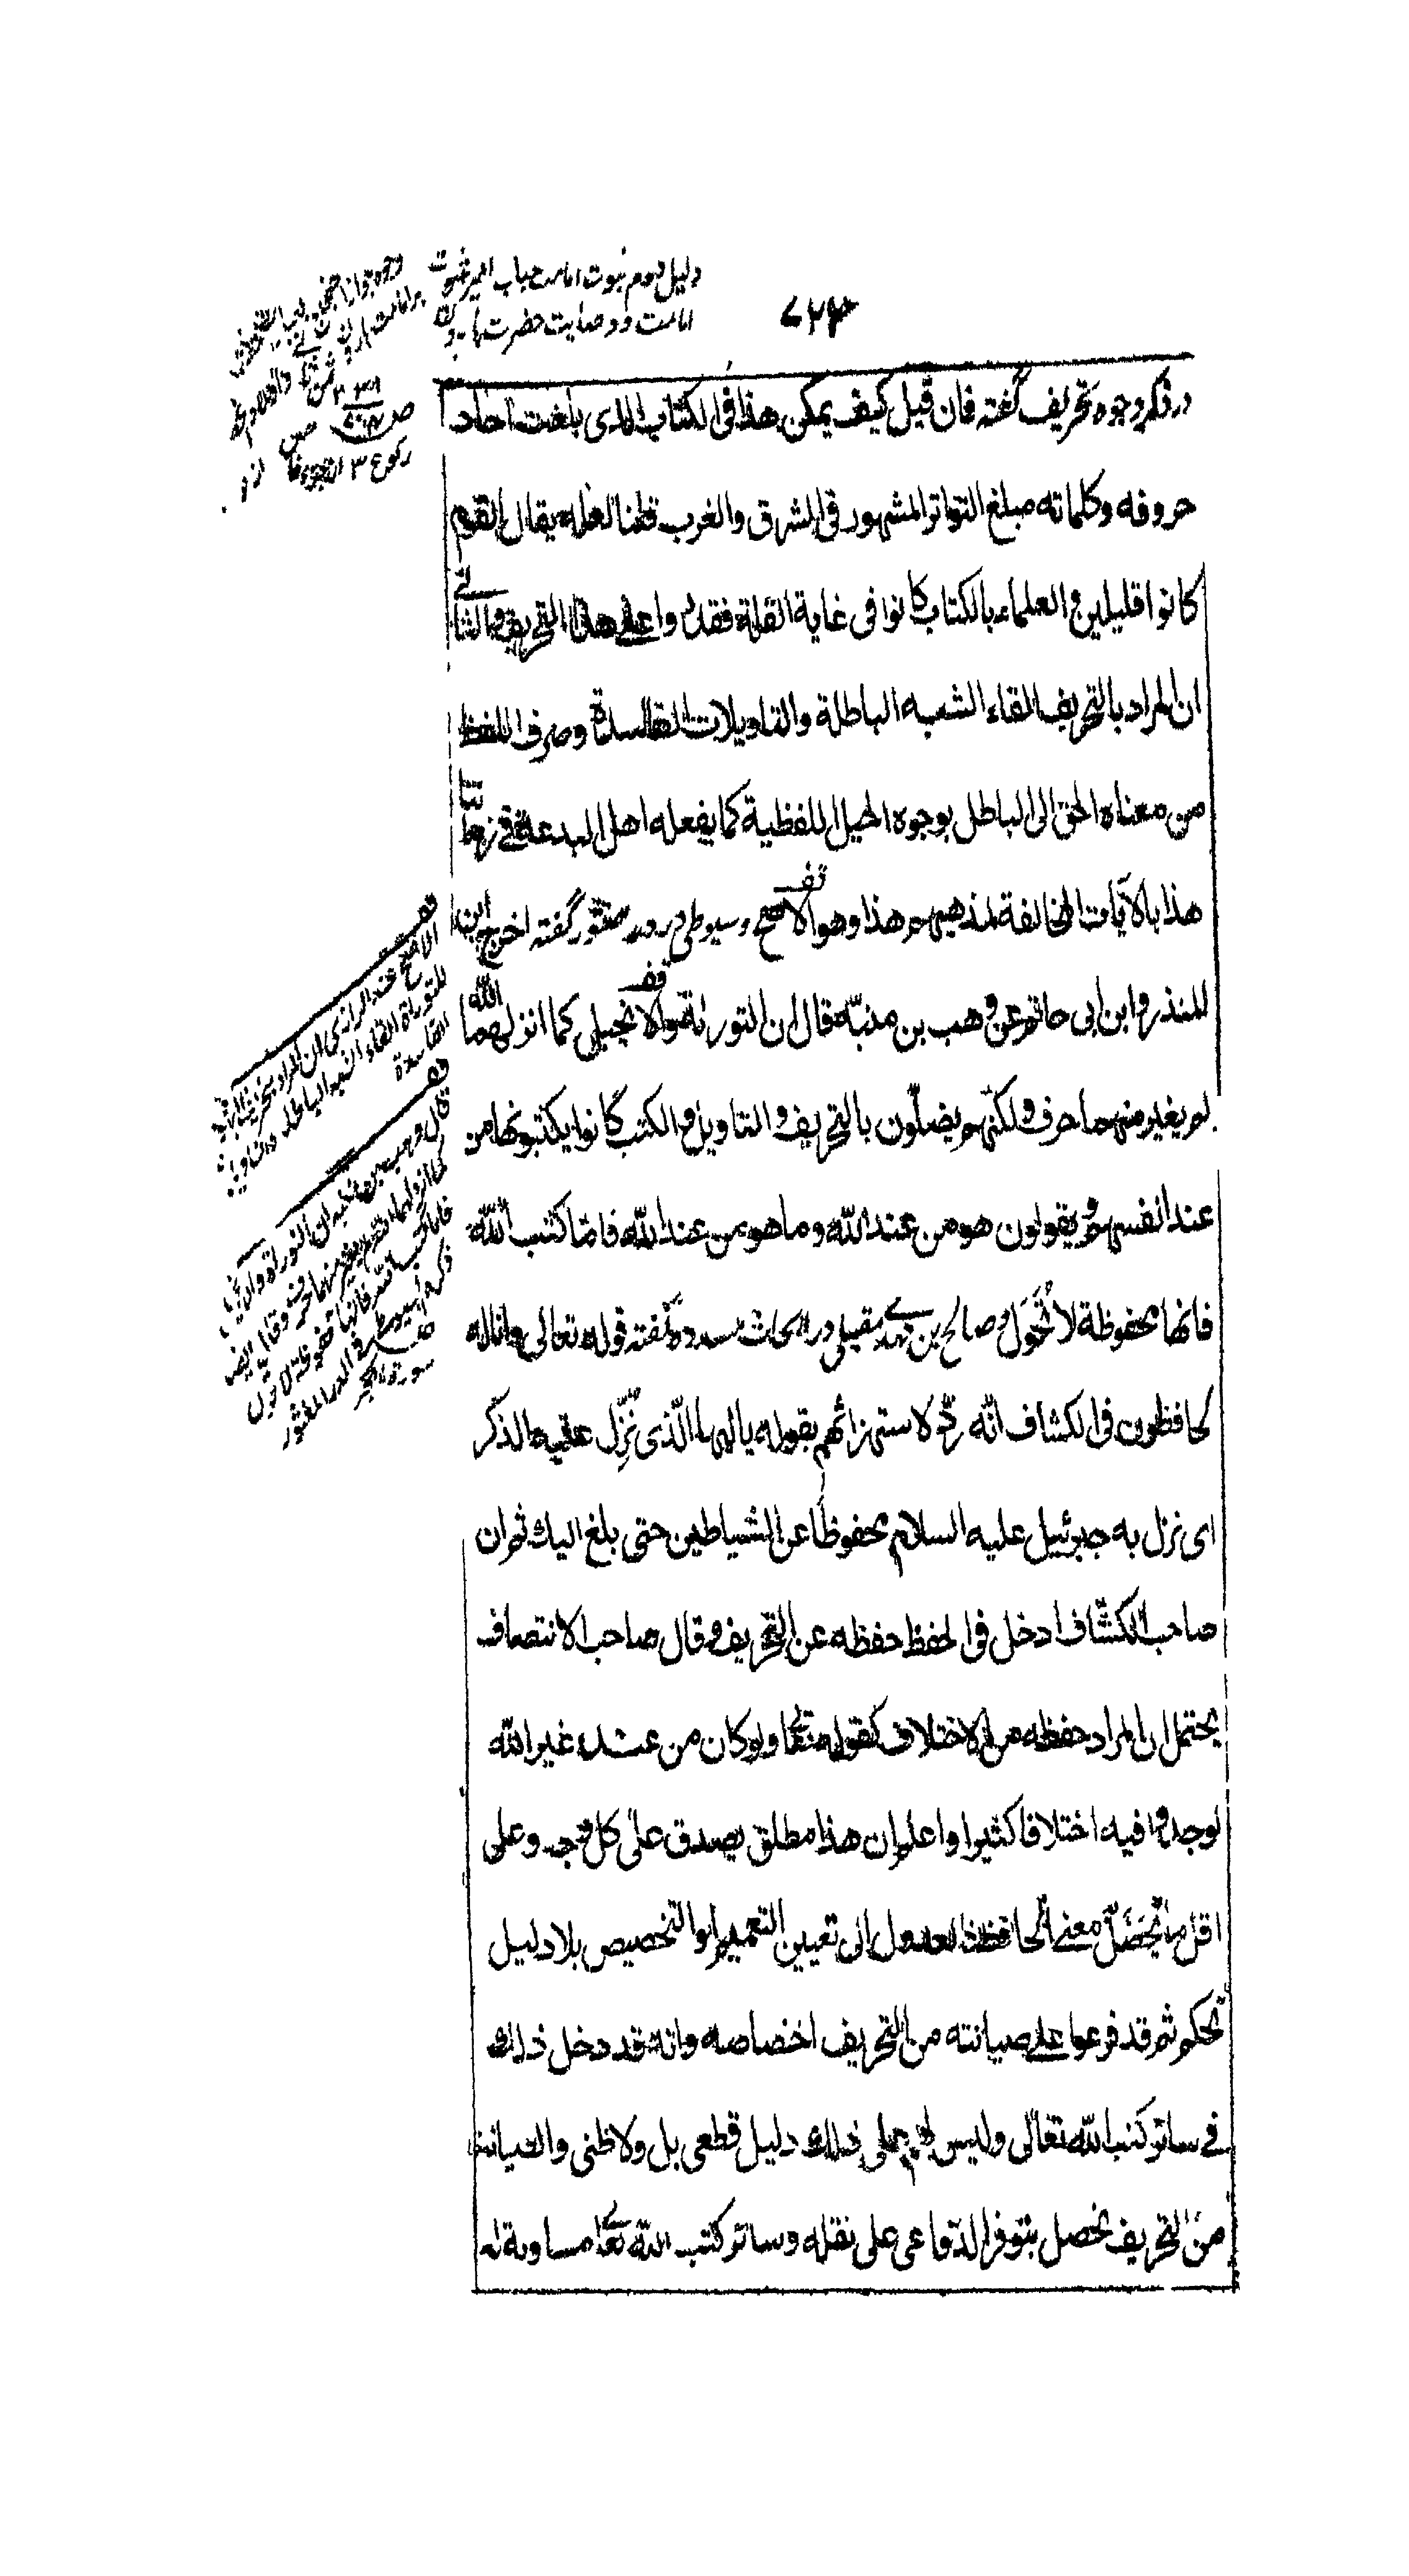 ۷۲۴
دلیل دوم ثبوت امامت جناب امیر ثبوت
امامت و وصایت حضرت
در ذکر وجوه تحریف گفته فان قیل کیف یمکن هذا فی الکتاب الذی بلغت احاد
حروفه وکلماته مبلغ التواتر المشهور فی المشرق والغرب قلنا لعله یقال القوم
کانوا قلیلین و العلماء بالکتاب کانوا فی غایة القلة فقدروا علی هذا التحریف والثانی
ان المراد بالتحریف القاء الشبه الباطلة والتاویلات الفاسدة وصرف اللفظ
من معناه الحق الی الباطل بوجوه الحیل اللفظیة کما یفعله اهل البدعة فی زماننا
هذا بالآیات المخالفة لمذهبهم هذا وهو الاصح و سیوطی در در منثور گفته اخرج ابن
المنذر و ابن ابی حاتم عن وهب بن منبّه قال ان التورٰىة والانجیل کما انزلهما الله
لم یغیر منهما حرف ولکنّهم یضلّون بالتحریف و التاویل و الکتب کانوا یکتبونها من
عند انفسهم و یقولون هو من عند الله وما هو من عند الله فامّا کتب الله
فانها محفوظة لا تُحَوّل و صالح بن مهدی مقبلی در ابحاث مسدده گفته قوله تعالی وانا له
لحافظون فی الکشاف انّه ردّ لاستهزائهم بقوله یا ایها الّذی نُزِّل علیه الذکر
ای نزل به جبرئیل علیه السلام محفوظًا عن الشیاطین حتی بلغ الیك ثم ان
صاحب الکشّاف ادخل فی الحفظ حفظه عن التحریف و قال صاحب الانتصاف
یحتمل ان المراد حفظه من الاختلاف کقوله تعالی ولو کان من عند غیر الله
لوجدوا فیه اختلافا کثیرا واعلم ان هذا مطلق یصدق علی کل وجه وعلی
اقل ما یُحَصِّل معنی الحافظ فالعدول الی تعیین التعمیم او التخصیص بلا دلیل
تحکم ثم قد فرعوا علی صیانته من التحریف اختصاصه وانه قد دخل ذلك
فی سائر کتب الله تعالی ولیس لهم علی ذلك دلیل قطعی بل ولا ظنی والصیانة
من التحریف یحصل بتوفر الدّواعی علی نقله وسائر کتب الله تعالی مساویة له
قف
الاصح عند الرازی ان المراد بتحریف
للتوراة القاء الشبه الباطلة والتاویلات
الفاسدة
قف
قال وهب بن منبه ان التوراة والانجیل
کما انزلهما الله لم یغیر منهما حرف وقال ایضا
فاما کتب الله فانها محفوظة لا تحول
ذکره السیوطی فی الدر المنثور